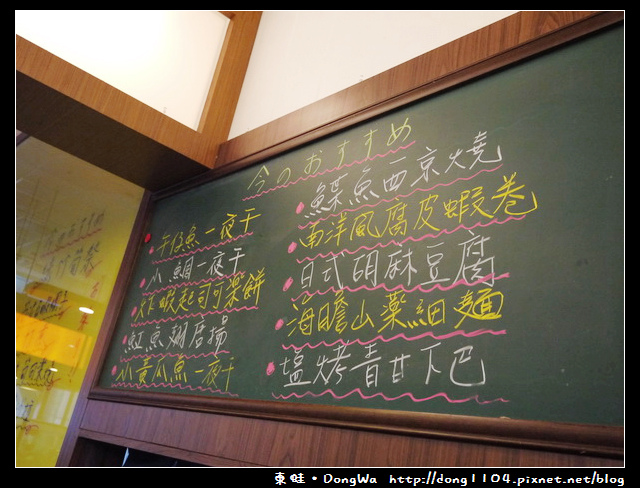 今のおすすめ
午仔魚一夜干
小鯛一夜干
炸蝦起司可樂餅
魟魚翅唐揚
小黃瓜魚一夜干
鰈魚西京燒
南洋風腐皮蝦卷
日式胡麻豆腐
海膽山藥細麵
塩烤青甘下巴
東畦•DongWa http://dong1104.pixnet.net/blog